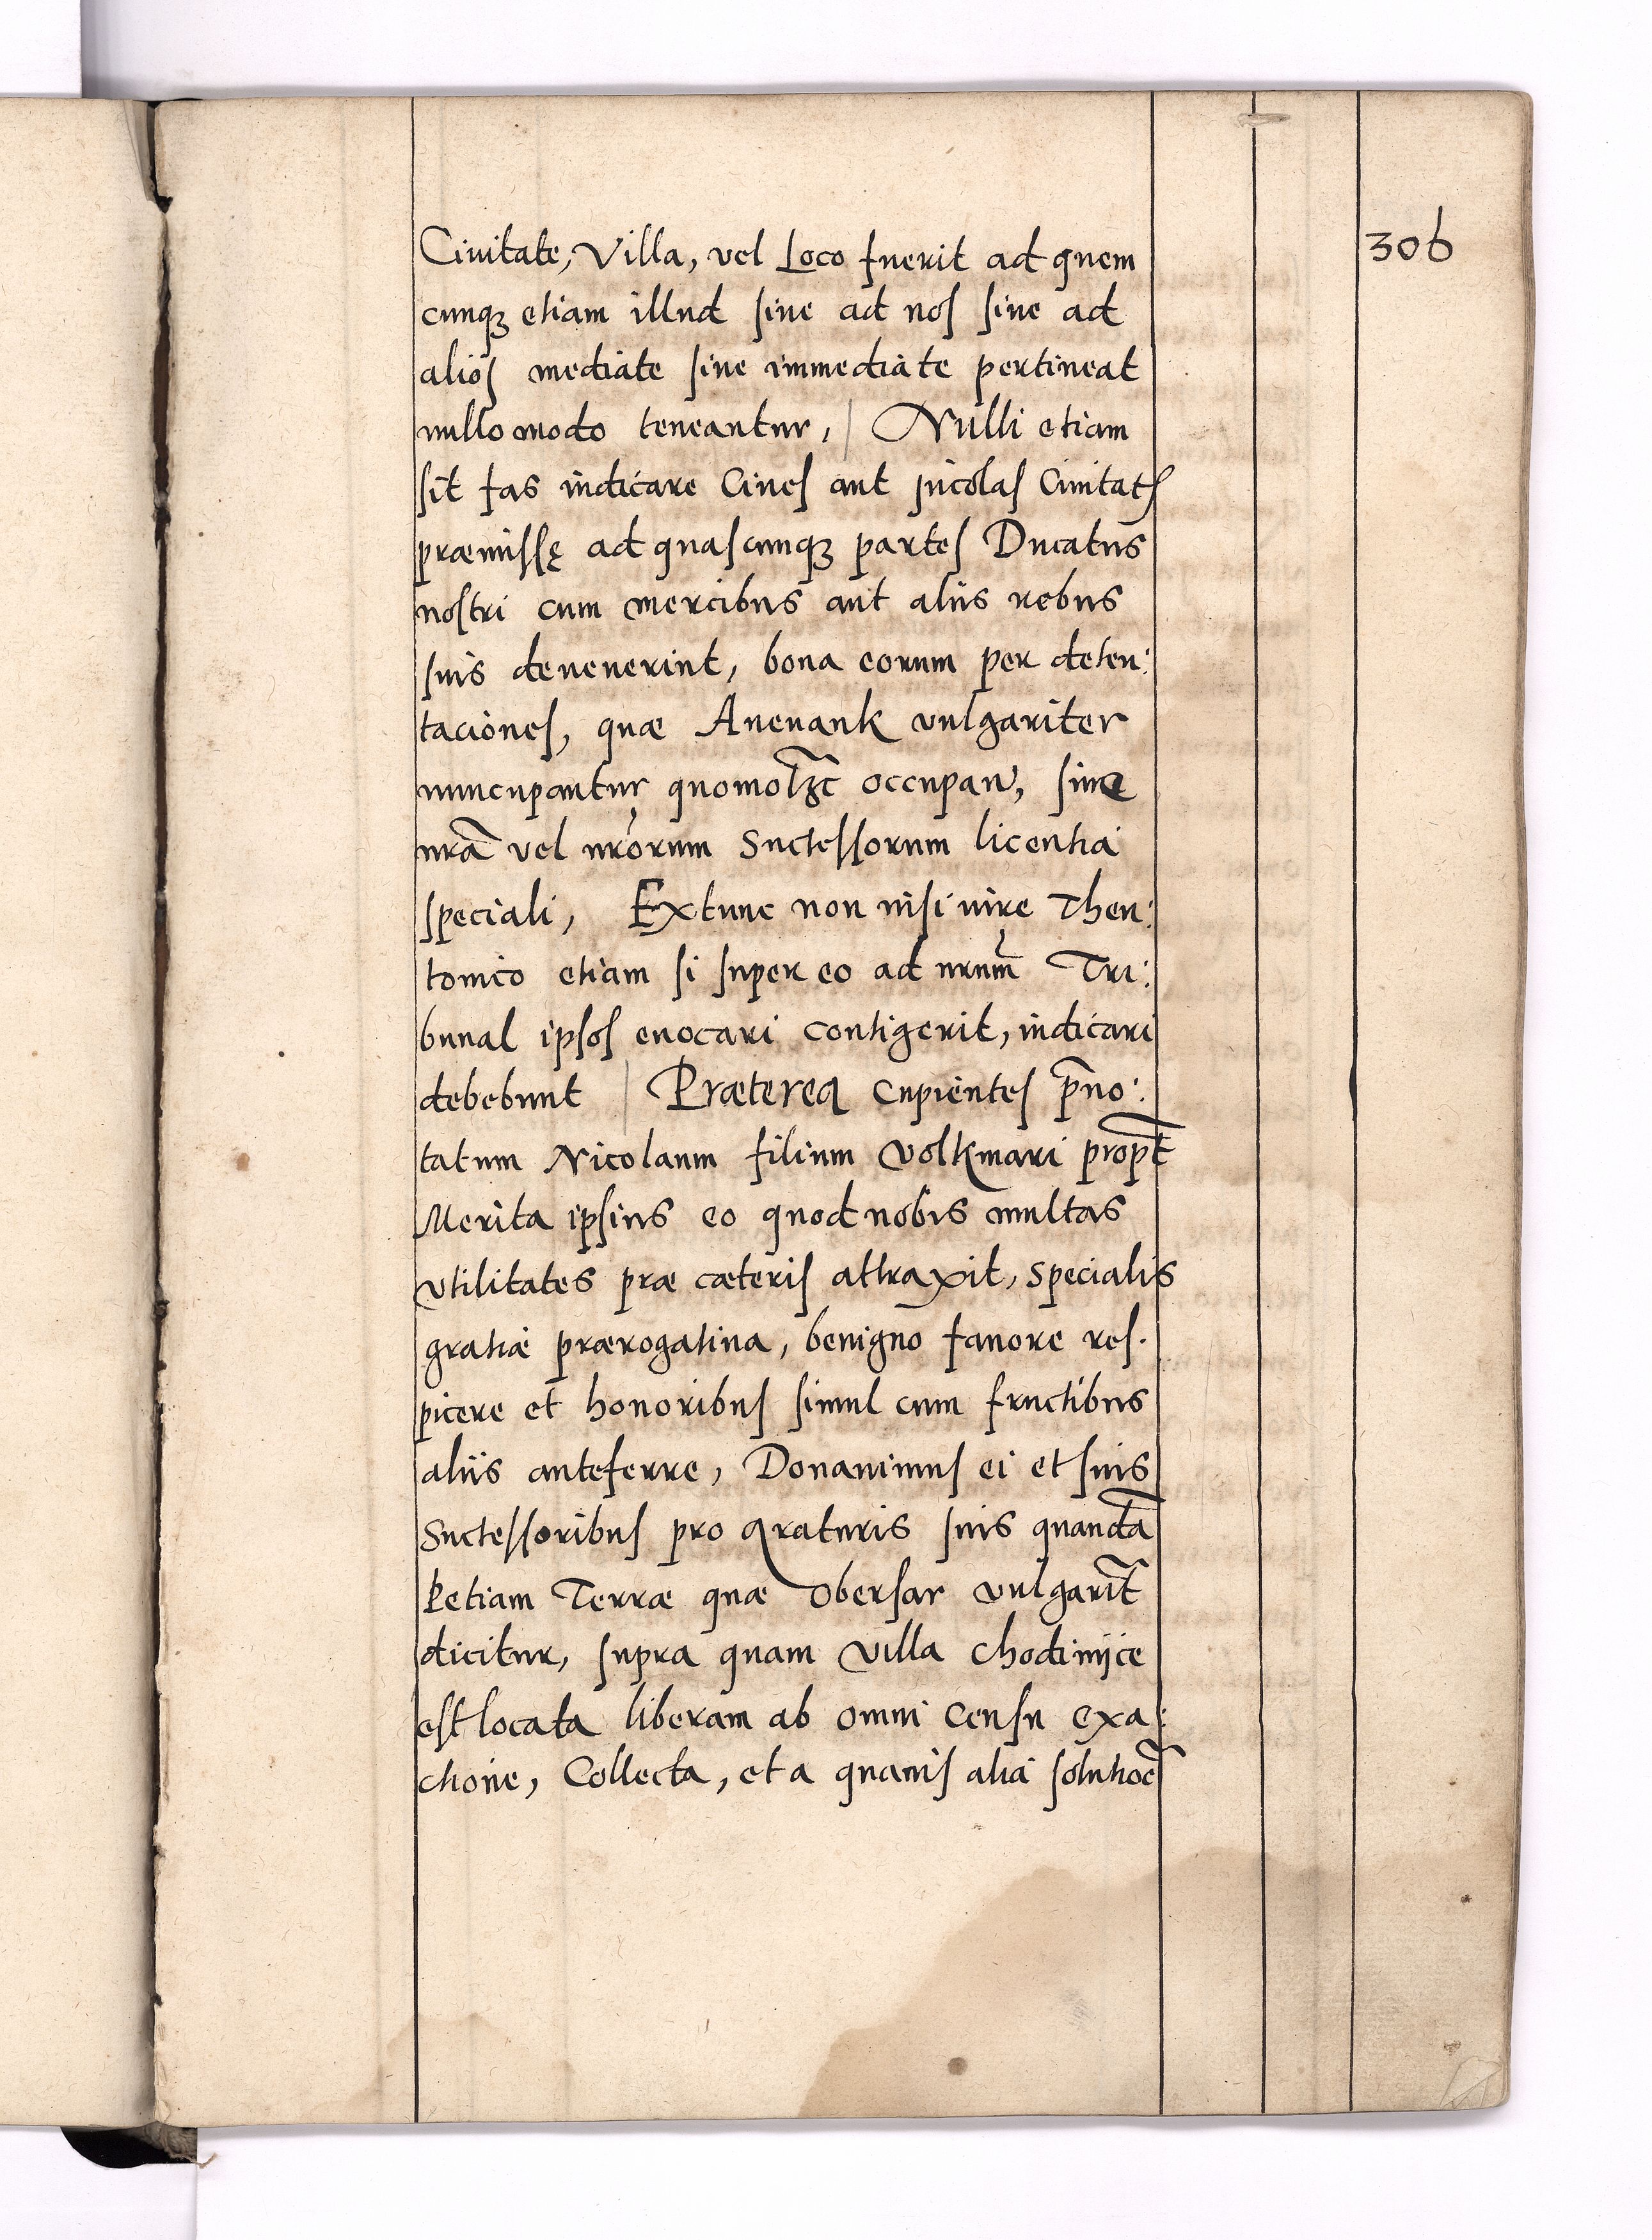 306
Ciuitate, Villa, vel Loco fuerit ad quem
cunqꝫ etiam illud siue ad nos siue ad
alios mediate siue immediate pertineat
nullo modo teneantur, / Nulli etiam
sit fas iudicare Ciues aut Incolas Ciuitatꝭ
præmissę ad quascunqꝫ partes Ducatus
nostri cum mercibus aut aliis rebus
suis deuenerint, bona eorum per deten:
taciones, quæ Aneuank vulgariter
nuncupantur occupan̄, sine
nrā vel nr̄orum Suctessorum licentia
speciali, Extunc non nisi iure Theu:
tonico etiam si super eo ad nrūm Tri:
bunal ipsos euocari contigerit, iudicari
debebunt / Prætereа cupientes p̄no:
tatum Nicolaum filium Volkmari prop̄t
Merita ipsius eo quod nobis multas
vtilitates præ cæteris attraxit, specialis
gratiæ prærogatiua, benigno fauore res.
picere et honoribus simul cum fructibus
aliis anteferre, Donauimus ei et suis
Suctessoribus pro Araturis suis quandā
Petiam Terræ quæ Obersar vulgarit̄
dicitur, supra quam villa Chodinijce
est locata liberam ab omni censu exa:
ctione, Collecta, et a quauis alia solutioē